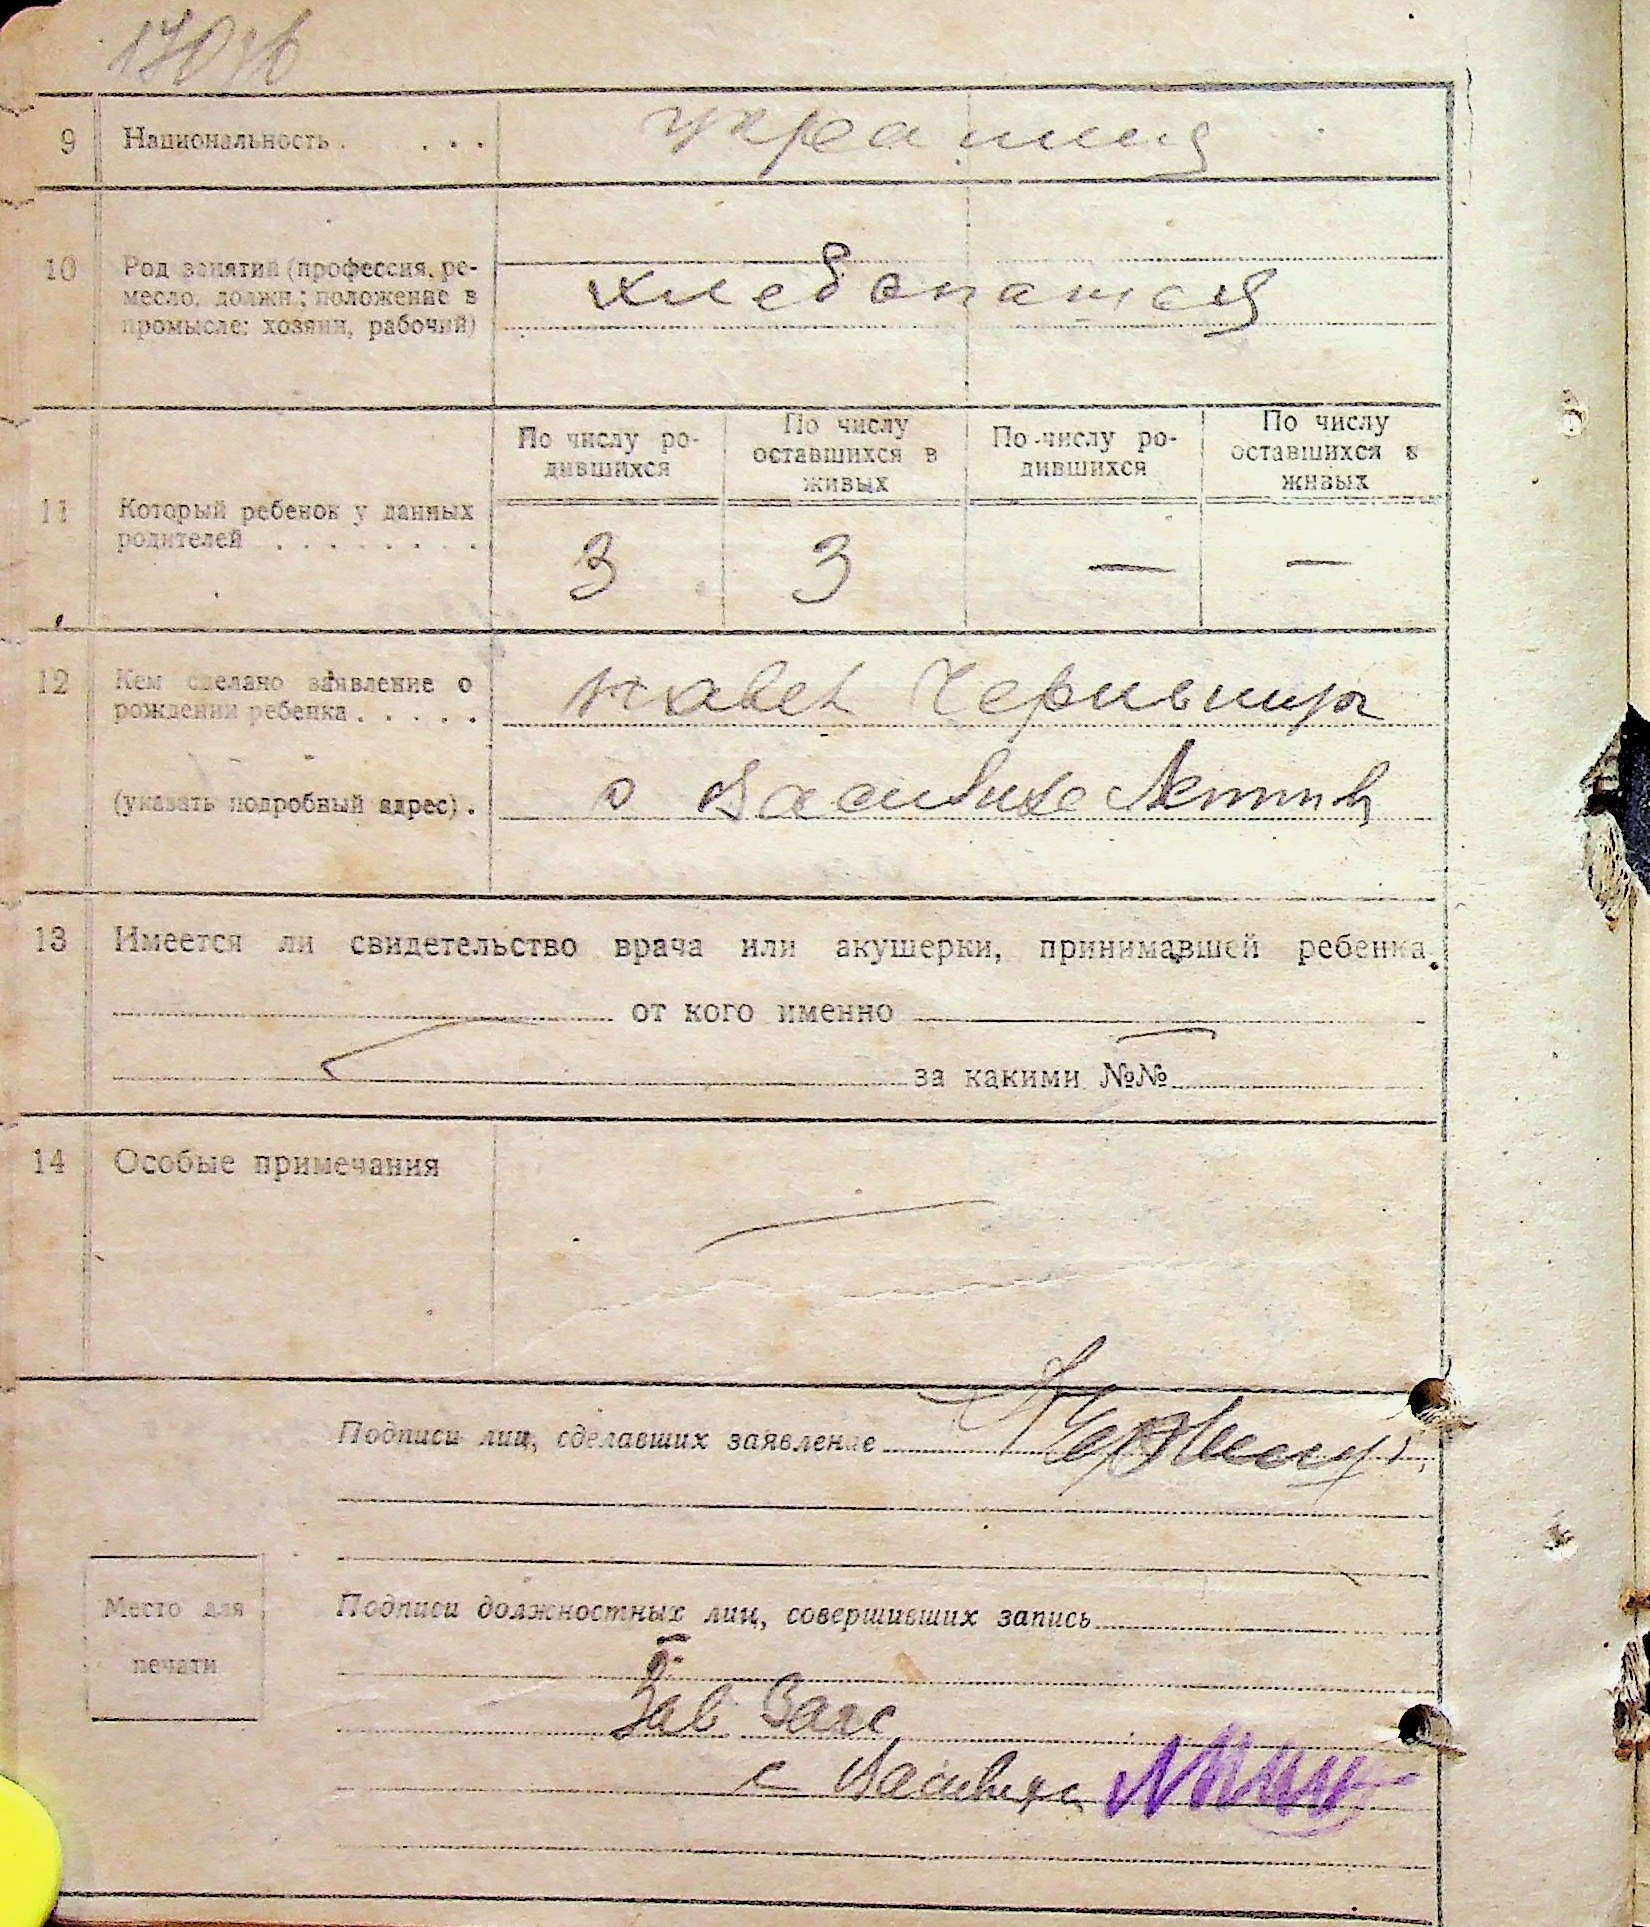 170
9 Национальность . . . . украинц
10 Род занятий (профессия, ре-
месло, должн.; положение в
промысле: хозяин, рабочий)
хлебопашец
По числу ро-
дившихся
По числу
оставшихся в
живых
По числу ро-
дившихся
По числу
оставшихся в
живых
11 Который ребенок у данных
родителей . . . . . . . .
3 3 — —
12 Кем сделано заявление о
рождении ребенка . . . . .
Павел
(указать подробный адрес) .
13 Имеется ли свидетельство врача или акушерки, принимавшей ребенка.
от кого именно
за какими №№
14 Особые примечания
Подписи лиц, сделавших заявление
Место для
печати
Подписи должностных лиц, совершивших запись
Зав Загс
с